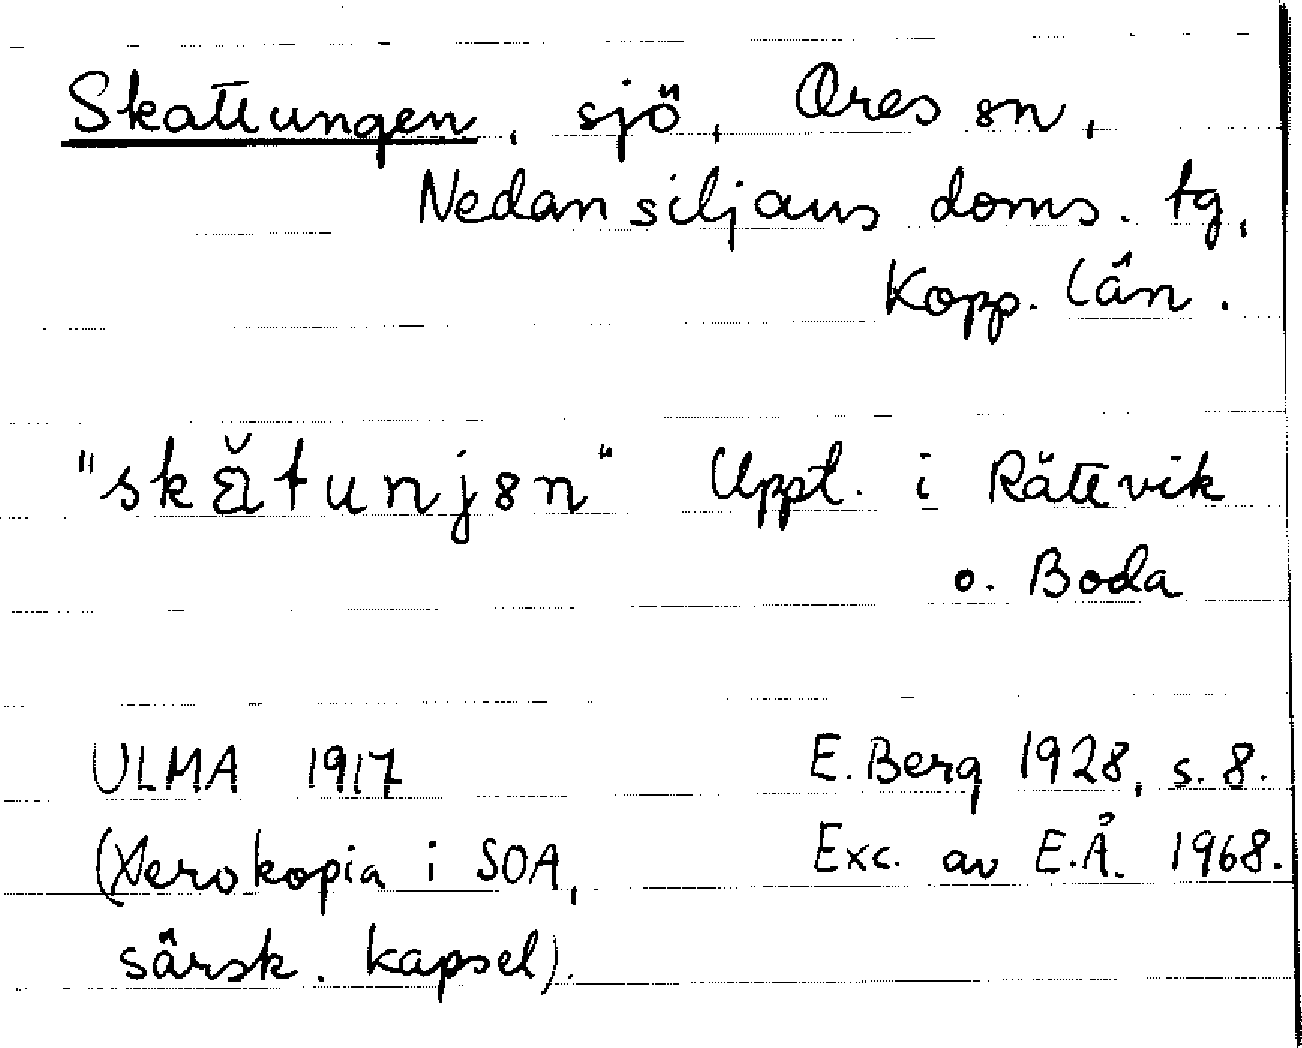 Skattungen, sjö, Ores sn,
Nedansiljans doms. tg,
Kopp. län.
"skătunjən" Uppt. i Rättvik
o. Boda
ULMA 1917 E. Berg 1928, s. 8.
(Xerokopia i SOA, Exc. av E.Å. 1968.
särsk. kapsel).